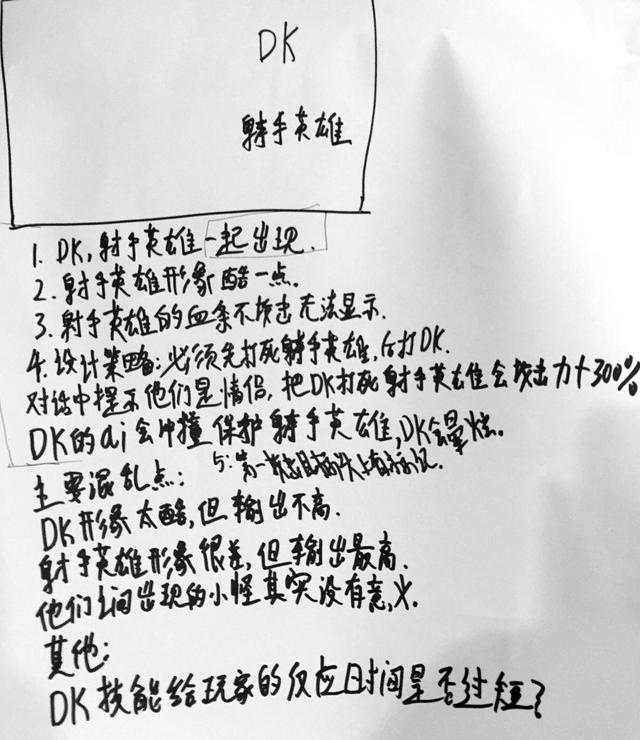 DK
射手英雄
1. DK,射手英雄一起出现.
2. 射手英雄形象酷一点.
3. 射手英雄的血条不攻击无法显示.
4. 设计策略:必须先打死射手英雄,后打DK.
对话中提示他们是情侣,把DK打死射手英雄会攻击力+300%
DK的ai会冲撞保护射手英雄,DK会晕炫。
5:第一攻击目标头上有标记.
主要混乱点:
DK形象太酷,但输出不高.
射手英雄形象很差,但输出最高.
他们之间出现的小怪其实没有意义.
其他:
DK技能给玩家的反应时间是否过短?